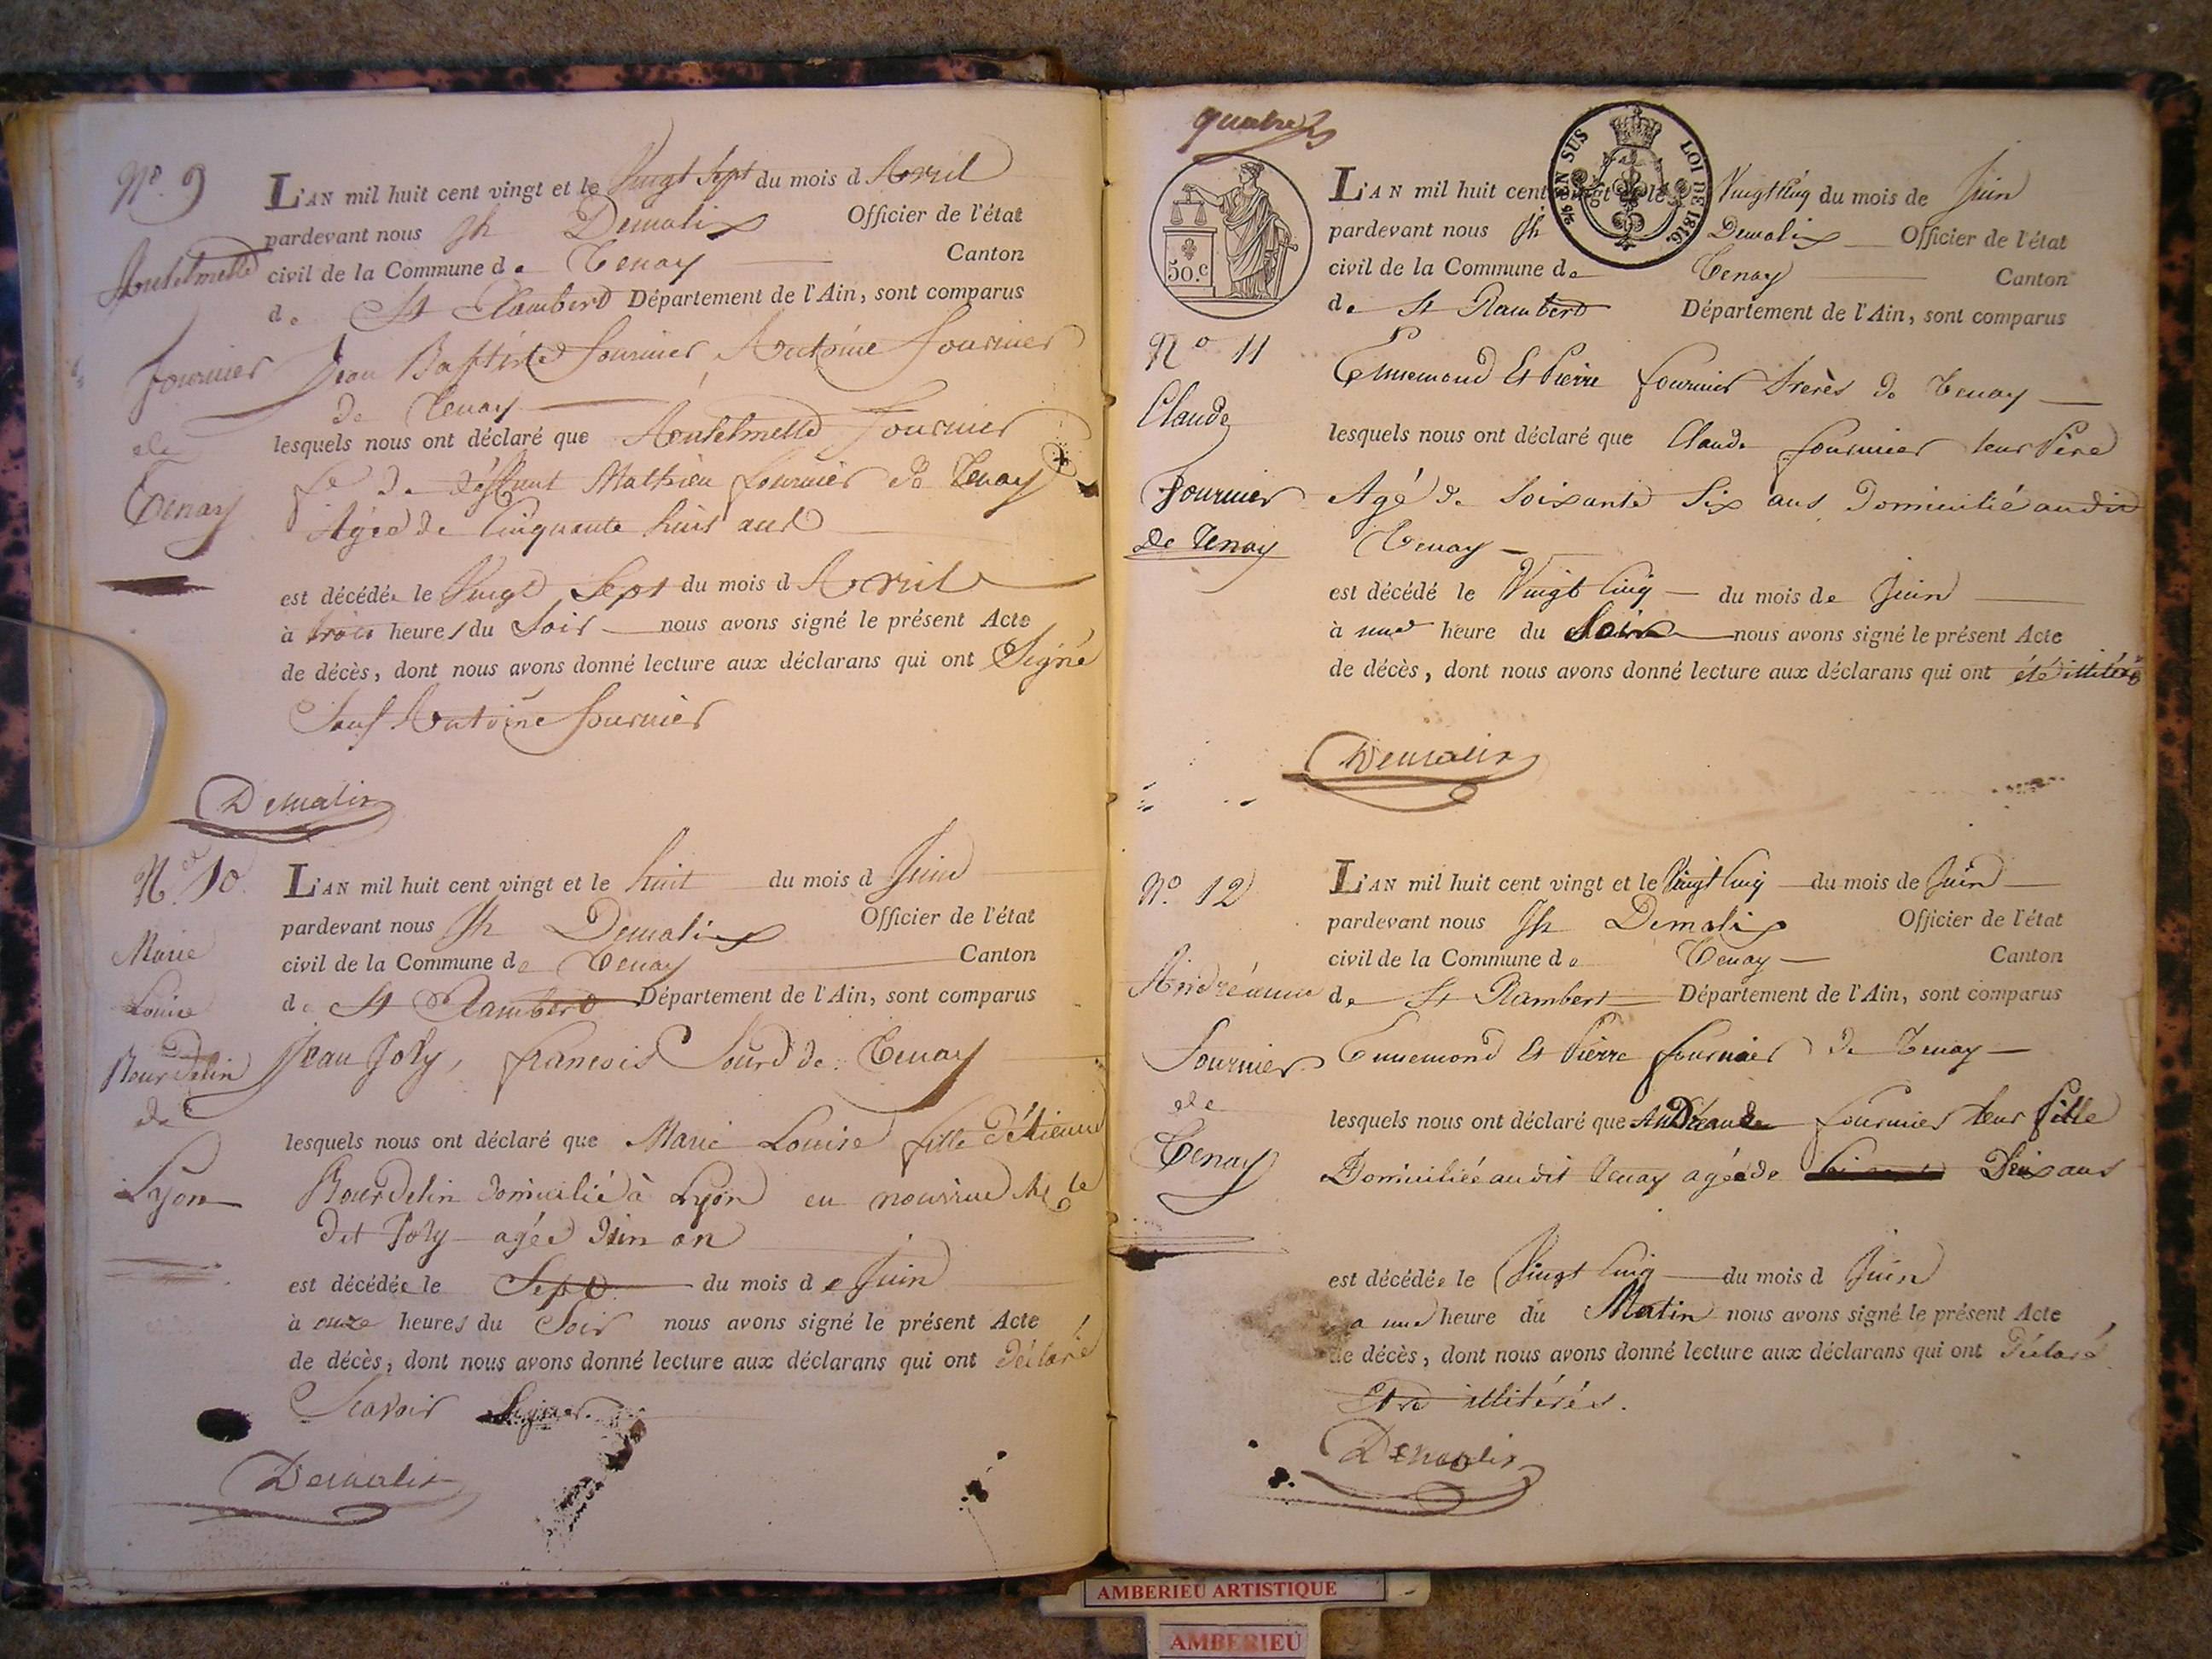 N.º 9
Anthelmette
fournier
de
Tenay
L'AN mil huit cent vingt et le Vingt Sept du mois d Avril
pardevant nous Jh Demalix Officier de l'état
civil de la Commune de Tenay Canton
de St Rambert Département de l'Ain, sont comparus
Jean Baptiste fournier, Antoine fournier
de Tenay
lesquels nous ont déclaré que Anthelmette Fournier
fe de déffunt Mathieu fournier de Tenay
Agée de Cinquante huit ans
est décédée le Vingt Sept du mois d Avril
à trois heures du Soir nous avons signé le présent Acte
de décès, dont nous avons donné lecture aux déclarans qui ont Signé
Sauf Antoine fournier
Demalix
N.º 10
Marie
Louise
Bourdelin
de
Lyon
L'AN mil huit cent vingt et le huit du mois d Juin
pardevant nous Jh Demalix Officier de l'état
civil de la Commune de Tenay Canton
de St Rambert Département de l'Ain, sont comparus
Jean Joly, francois Sourd de Tenay
lesquels nous ont déclaré que Marie Louise fille d'étienne
Bourdelin domicilié à Lyon en nourrice le
dit Joly agée d'un an
est décédée le Sept du mois de Juin
à onze heures du Soir nous avons signé le présent Acte
de décès, dont nous avons donné lecture aux déclarans qui ont déclaré
Scavoir Signer.
Demalix
quatre
50.c
EN SUS
LOI DE 1816.
N.º 11
Claude
Fournier
De Tenay
L'AN mil huit cent vingt et le Vingt Cinq du mois de Juin
pardevant nous Jh Demalix Officier de l'état
civil de la Commune de Tenay Canton
de St Rambert Département de l'Ain, sont comparus
Ennemond Et Pierre fournier frerès de Tenay
lesquels nous ont déclaré que Claude fournier leur Père
Agé de Soixante Six ans Domicilié audit
Tenay
est décédé le Vingt Cinq du mois de Juin
à une heure du Soir nous avons signé le présent Acte
de décès, dont nous avons donné lecture aux déclarans qui ont été illitérés
Demalix
N.º 12
Andréanne
Fournier
de
Tenay
L'AN mil huit cent vingt et le Vingt Cinq du mois de Juin
pardevant nous Jh Demalix Officier de l'état
civil de la Commune de Tenay Canton
de St Rambert Département de l'Ain, sont comparus
Ennemond Et Pierre fournier de Tenay
lesquels nous ont déclaré que fournier leur fille
Domiciliée audit Tenay agée de ans
est décédée le Vingt Cinq du mois d Juin
a une heure du Matin nous avons signé le présent Acte
de décès, dont nous avons donné lecture aux déclarans qui ont Déclaré
Etre illitérés.
Demalix
AMBERIEU ARTISTIQUE
AMBERIEU